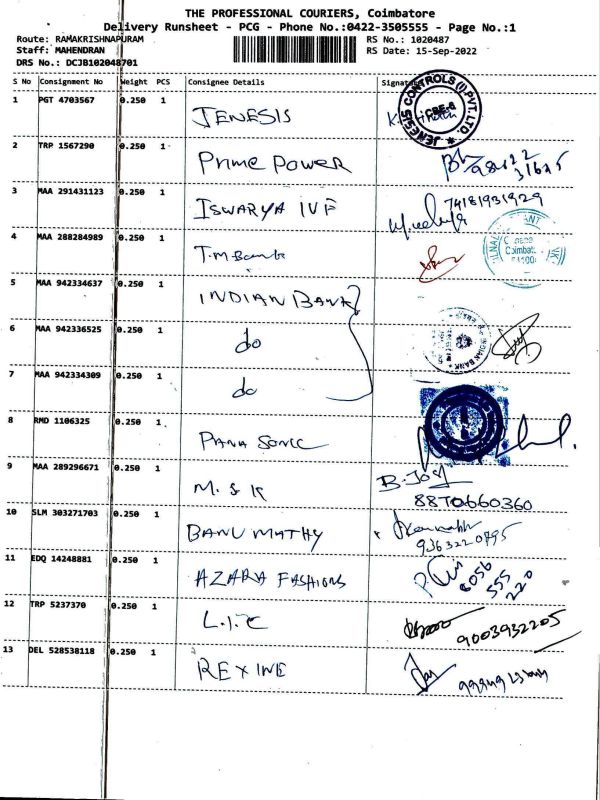 THE PROFESSIONAL COURIERS, Coimbatore
Delivery Runsheet - PCG - Phone No.:0422-3505555 - Page No.:1
Route: RAMAKRISHNAPURAM RS No.: 1020487
Staff: MAHENDRAN RS Date: 15-Sep-2022
DRS No.: DCJB102048701
S No Consignment No Weight PCS Consignee Details Signature
1 PGT 4703567 0.250 1 JENESIS
JENESIS CONTROLS (I) PVT. LTD. CBE-6
2 TRP 1567290 0.250 1 Prime Power
3 MAA 291431123 0.250 1 ISWARYA IVF 74181931929
4 MAA 288284989 0.250 1 T.M Bank
5 MAA 942334637 0.250 1 INDIAN BANK
6 MAA 942336525 0.250 1 do
7 MAA 942334309 0.250 1 do
INDIAN BANK
8 RMD 1106325 0.250 1 PANA SONIC
9 MAA 289296671 0.250 1 M.S.K B.Joy
8870660360
10 SLM 303271703 0.250 1 BANU MATHY
9363220795
11 EDQ 14248881 0.250 1 AZARA FASHIONS 8056
555
220
12 TRP 5237370 0.250 1 L.I.C 9003932205
13 DEL 528538118 0.250 1 REXINE